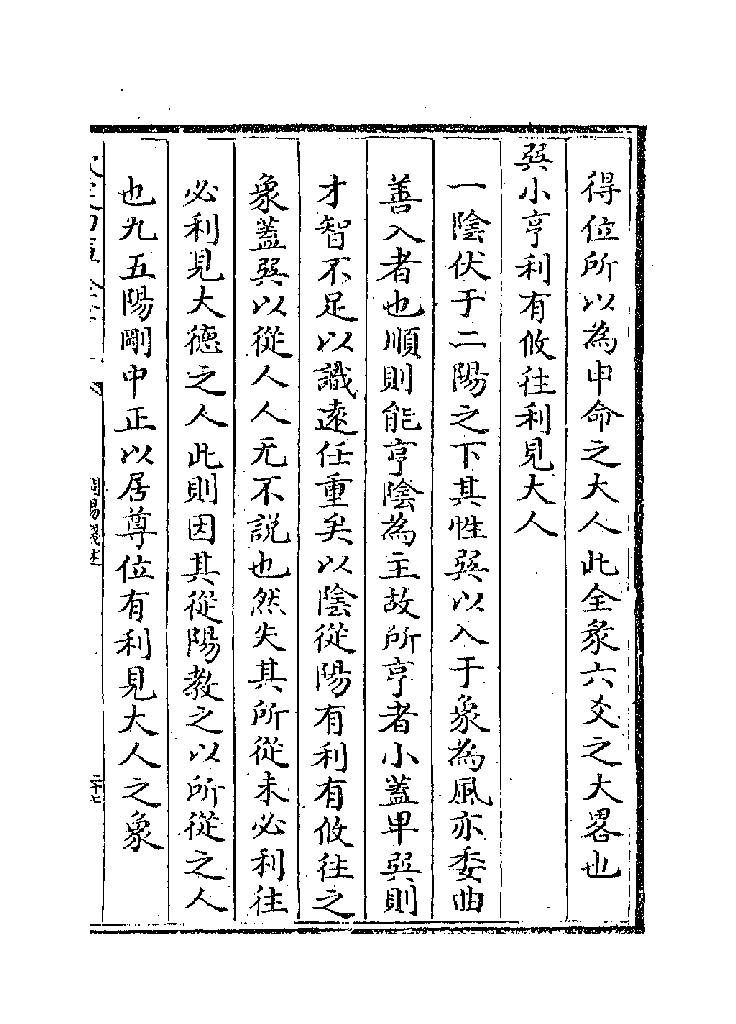 得位所以為申命之大人此全彖六爻之大畧也
巽小亨利有攸往利見大人
一陰伏于二陽之下其性巽以入于象為風亦委曲
善入者也順則能亨陰為主故所亨者小蓋卑巽則
才智不足以識遠任重矣以陰從陽有利有攸往之
象蓋巽以從人人无不説也然失其所從未必利往
必利見大德之人此則因其從陽教之以所從之人
也九五陽剛中正以居尊位有利見大人之象